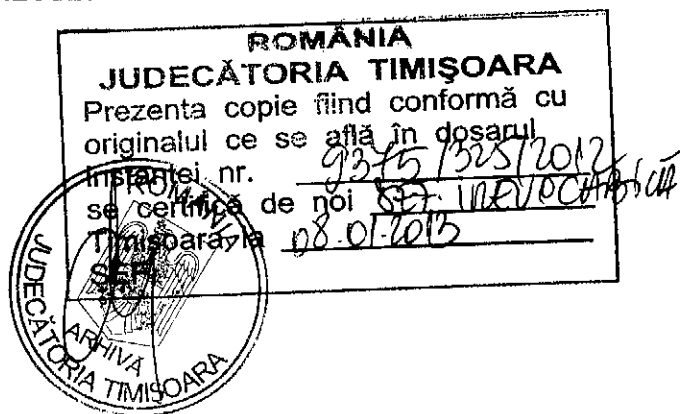 ROMÂNIA
JUDECĂTORIA TIMIŞOARA
Prezenta copie fiind conformă cu
originalul ce se află în dosarul
instanţei nr. 9375/325/2012
se certifică de noi DEF. IREVOCABILĂ
Timişoara, la 08.01.2013
ŞEF,
ROMÂNIA
JUDECĂTORIA TIMIŞOARA
ARHIVĂ